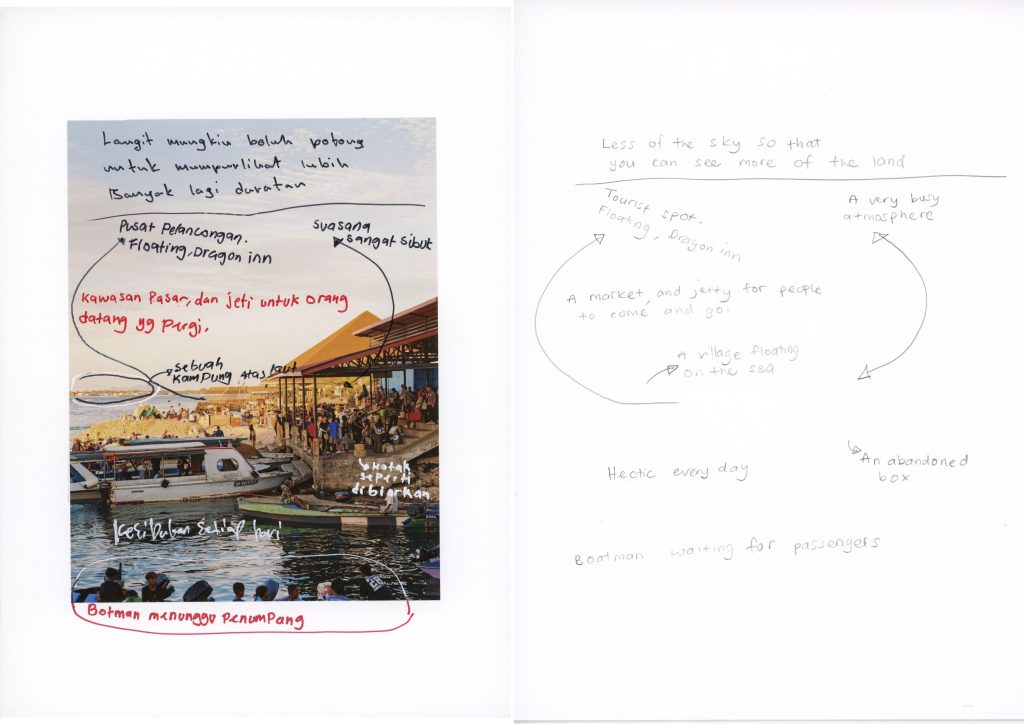 Langit mungkin boleh potong
untuk mumpurlihat lubih
Banyak lagi duratan
Pusat Pelancongan.
Floating, Dragon inn
suasana
sangat sibuk
Kawasan Pasar, dan jeti untuk orang
datang yg Pergi.
sebuah
Kampung atas laut
kotak
seperti
dibiarkan
Kesibukan setiap hari
Botman menunggu Penumpang
Less of the sky so that
you can see more of the land
Tourist spot.
Floating, Dragon inn
A very busy
atmosphere
A market, and jetty for people
to come and go.
A village floating
on the sea
Hectic every day
An abandoned
box
Boatman waiting for passengers